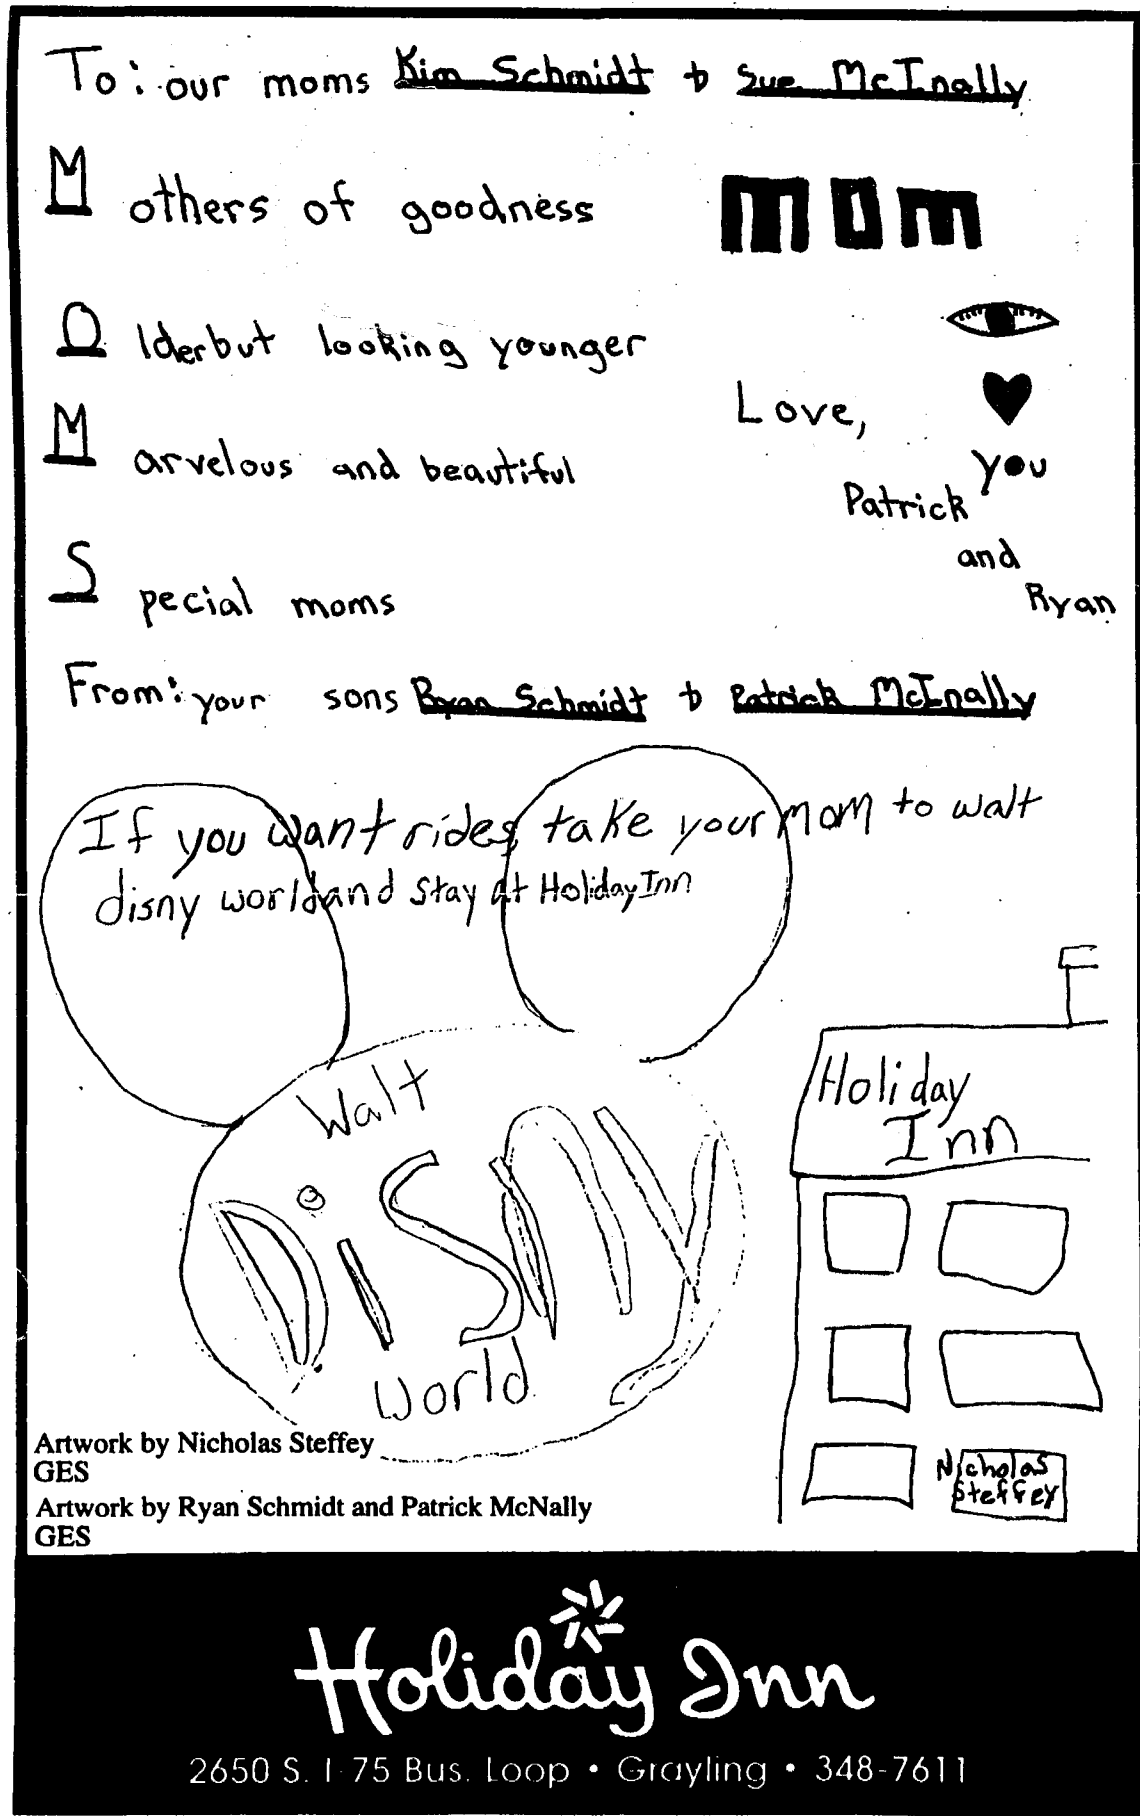 To: our moms Kim Schmidt + Sue McInally
Mothers of goodness
mom
Olderbut looking younger
Marvelous and beautiful
Love,
you
Patrick
and
Ryan
Special moms
From: your sons Ryan Schmidt + Patrick McInally
If you want rides, take your mom to walt
disny world and stay at Holiday Inn
Walt
DiSNY
World
Holiday
Inn
Nicholas
Steffey
Artwork by Nicholas Steffey
GES
Artwork by Ryan Schmidt and Patrick McNally
GES
Holiday Inn
2650 S. I-75 Bus. Loop • Grayling • 348-7611